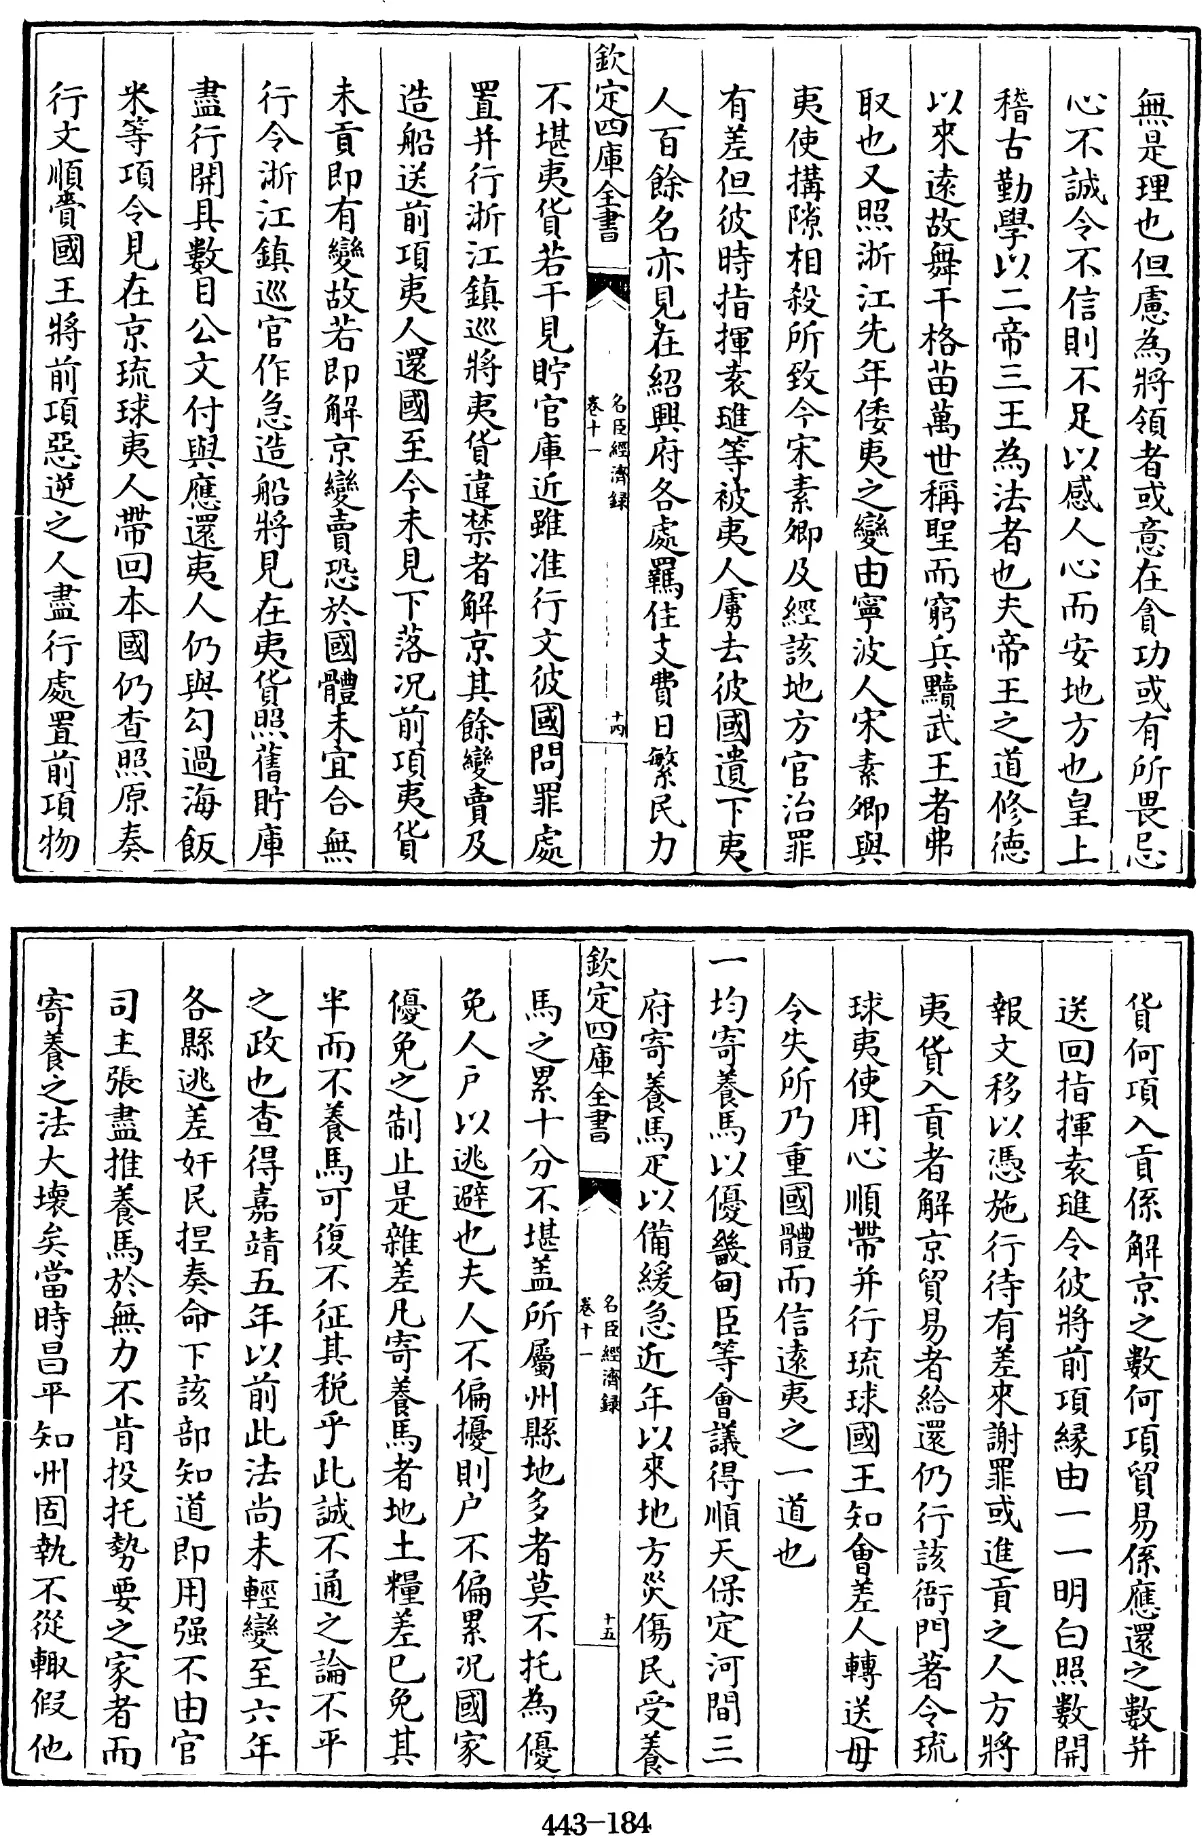 無是理也但慮為將領者或意在貪功或有所畏忌
心不誠令不信則不足以感人心而安地方也皇上
稽古勤學以二帝三王為法者也夫帝王之道修德
以來遠故舞干格苗萬世稱聖而窮兵黷武王者弗
取也又照浙江先年倭夷之變由寧波人宋素卿與
夷使搆隙相殺所致今宋素卿及經該地方官治罪
有差但彼時指揮袁璡等被夷人虜去彼國遺下夷
人百餘名亦見在紹興府各處羈住支費日繁民力
欽定四庫全書
名臣經濟録
卷十一
十四
不堪夷貨若干見貯官庫近雖准行文彼國問罪處
置并行浙江鎮巡將夷貨違禁者解京其餘變賣及
造船送前項夷人還國至今未見下落况前項夷貨
未貢即有變故若即解京變賣恐於國體未宜合無
行令浙江鎮巡官作急造船將見在夷貨照舊貯庫
盡行開具數目公文付與應還夷人仍與勾過海飯
米等項令見在京琉球夷人帶回本國仍查照原奏
行文順賫國王將前項惡逆之人盡行處置前項物
貨何項入貢係解京之數何項貿易係應還之數并
送回指揮袁璡令彼將前項縁由一一明白照數開
報文移以憑施行待有差來謝罪或進貢之人方將
夷貨入貢者解京貿易者給還仍行該衙門著令琉
球夷使用心順帶并行琉球國王知會差人轉送毋
令失所乃重國體而信遠夷之一道也
一均寄養馬以優畿甸臣等會議得順天保定河間三
府寄養馬疋以備緩急近年以來地方災傷民受養
欽定四庫全書
名臣經濟録
卷十一
十五
馬之累十分不堪盖所屬州縣地多者莫不托為優
免人户以逃避也夫人不偏擾則户不偏累况國家
優免之制止是雜差凡寄養馬者地土糧差已免其
半而不養馬可復不征其税乎此誠不通之論不平
之政也查得嘉靖五年以前此法尚未輕變至六年
各縣逃差奸民捏奏命下該部知道即用强不由官
司主張盡推養馬於無力不肯投托勢要之家者而
寄養之法大壞矣當時昌平知州固執不從輙假他
443-184